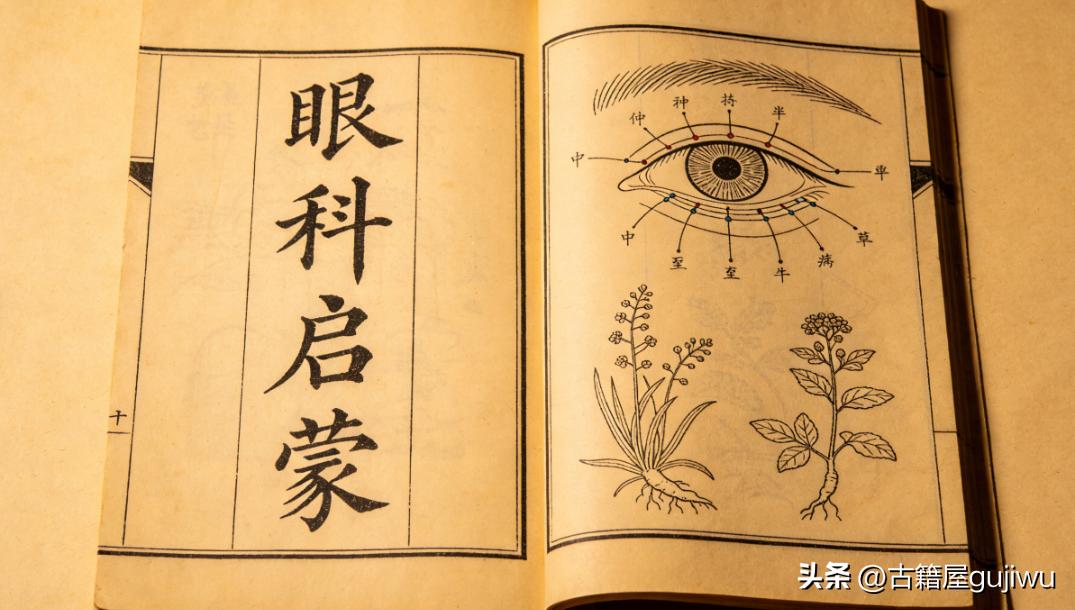 眼科启蒙
神
持
半
仲
中
中
草
至
至
牛
病
头条 @古籍屋gujiwu